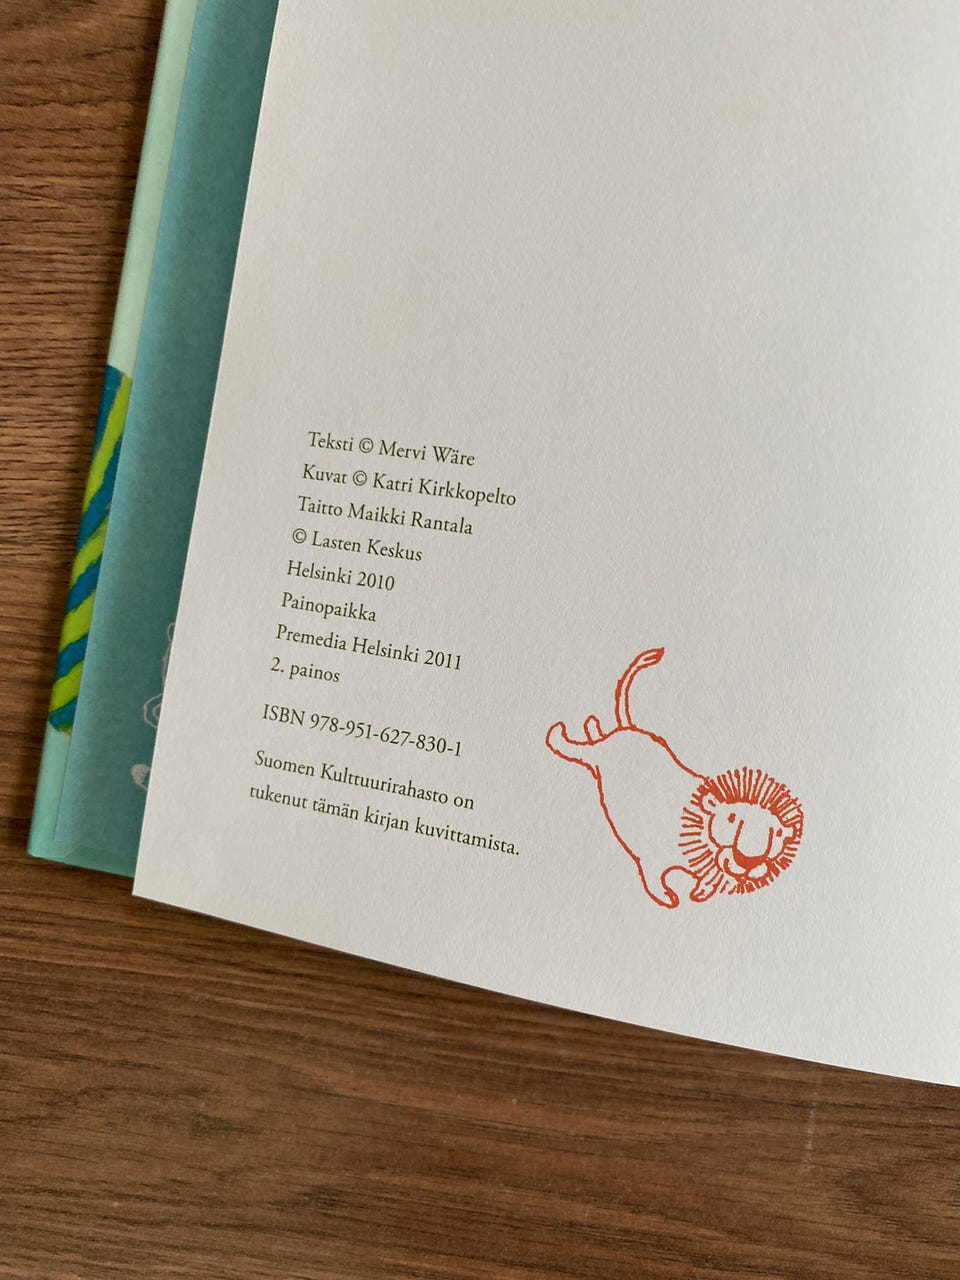 Teksti © Mervi Wäre
Kuvat © Katri Kirkkopelto
Taitto Maikki Rantala
© Lasten Keskus
Helsinki 2010
Painopaikka
Premedia Helsinki 2011
2. painos
ISBN 978-951-627-830-1
Suomen Kulttuurirahasto on
tukenut tämän kirjan kuvittamista.